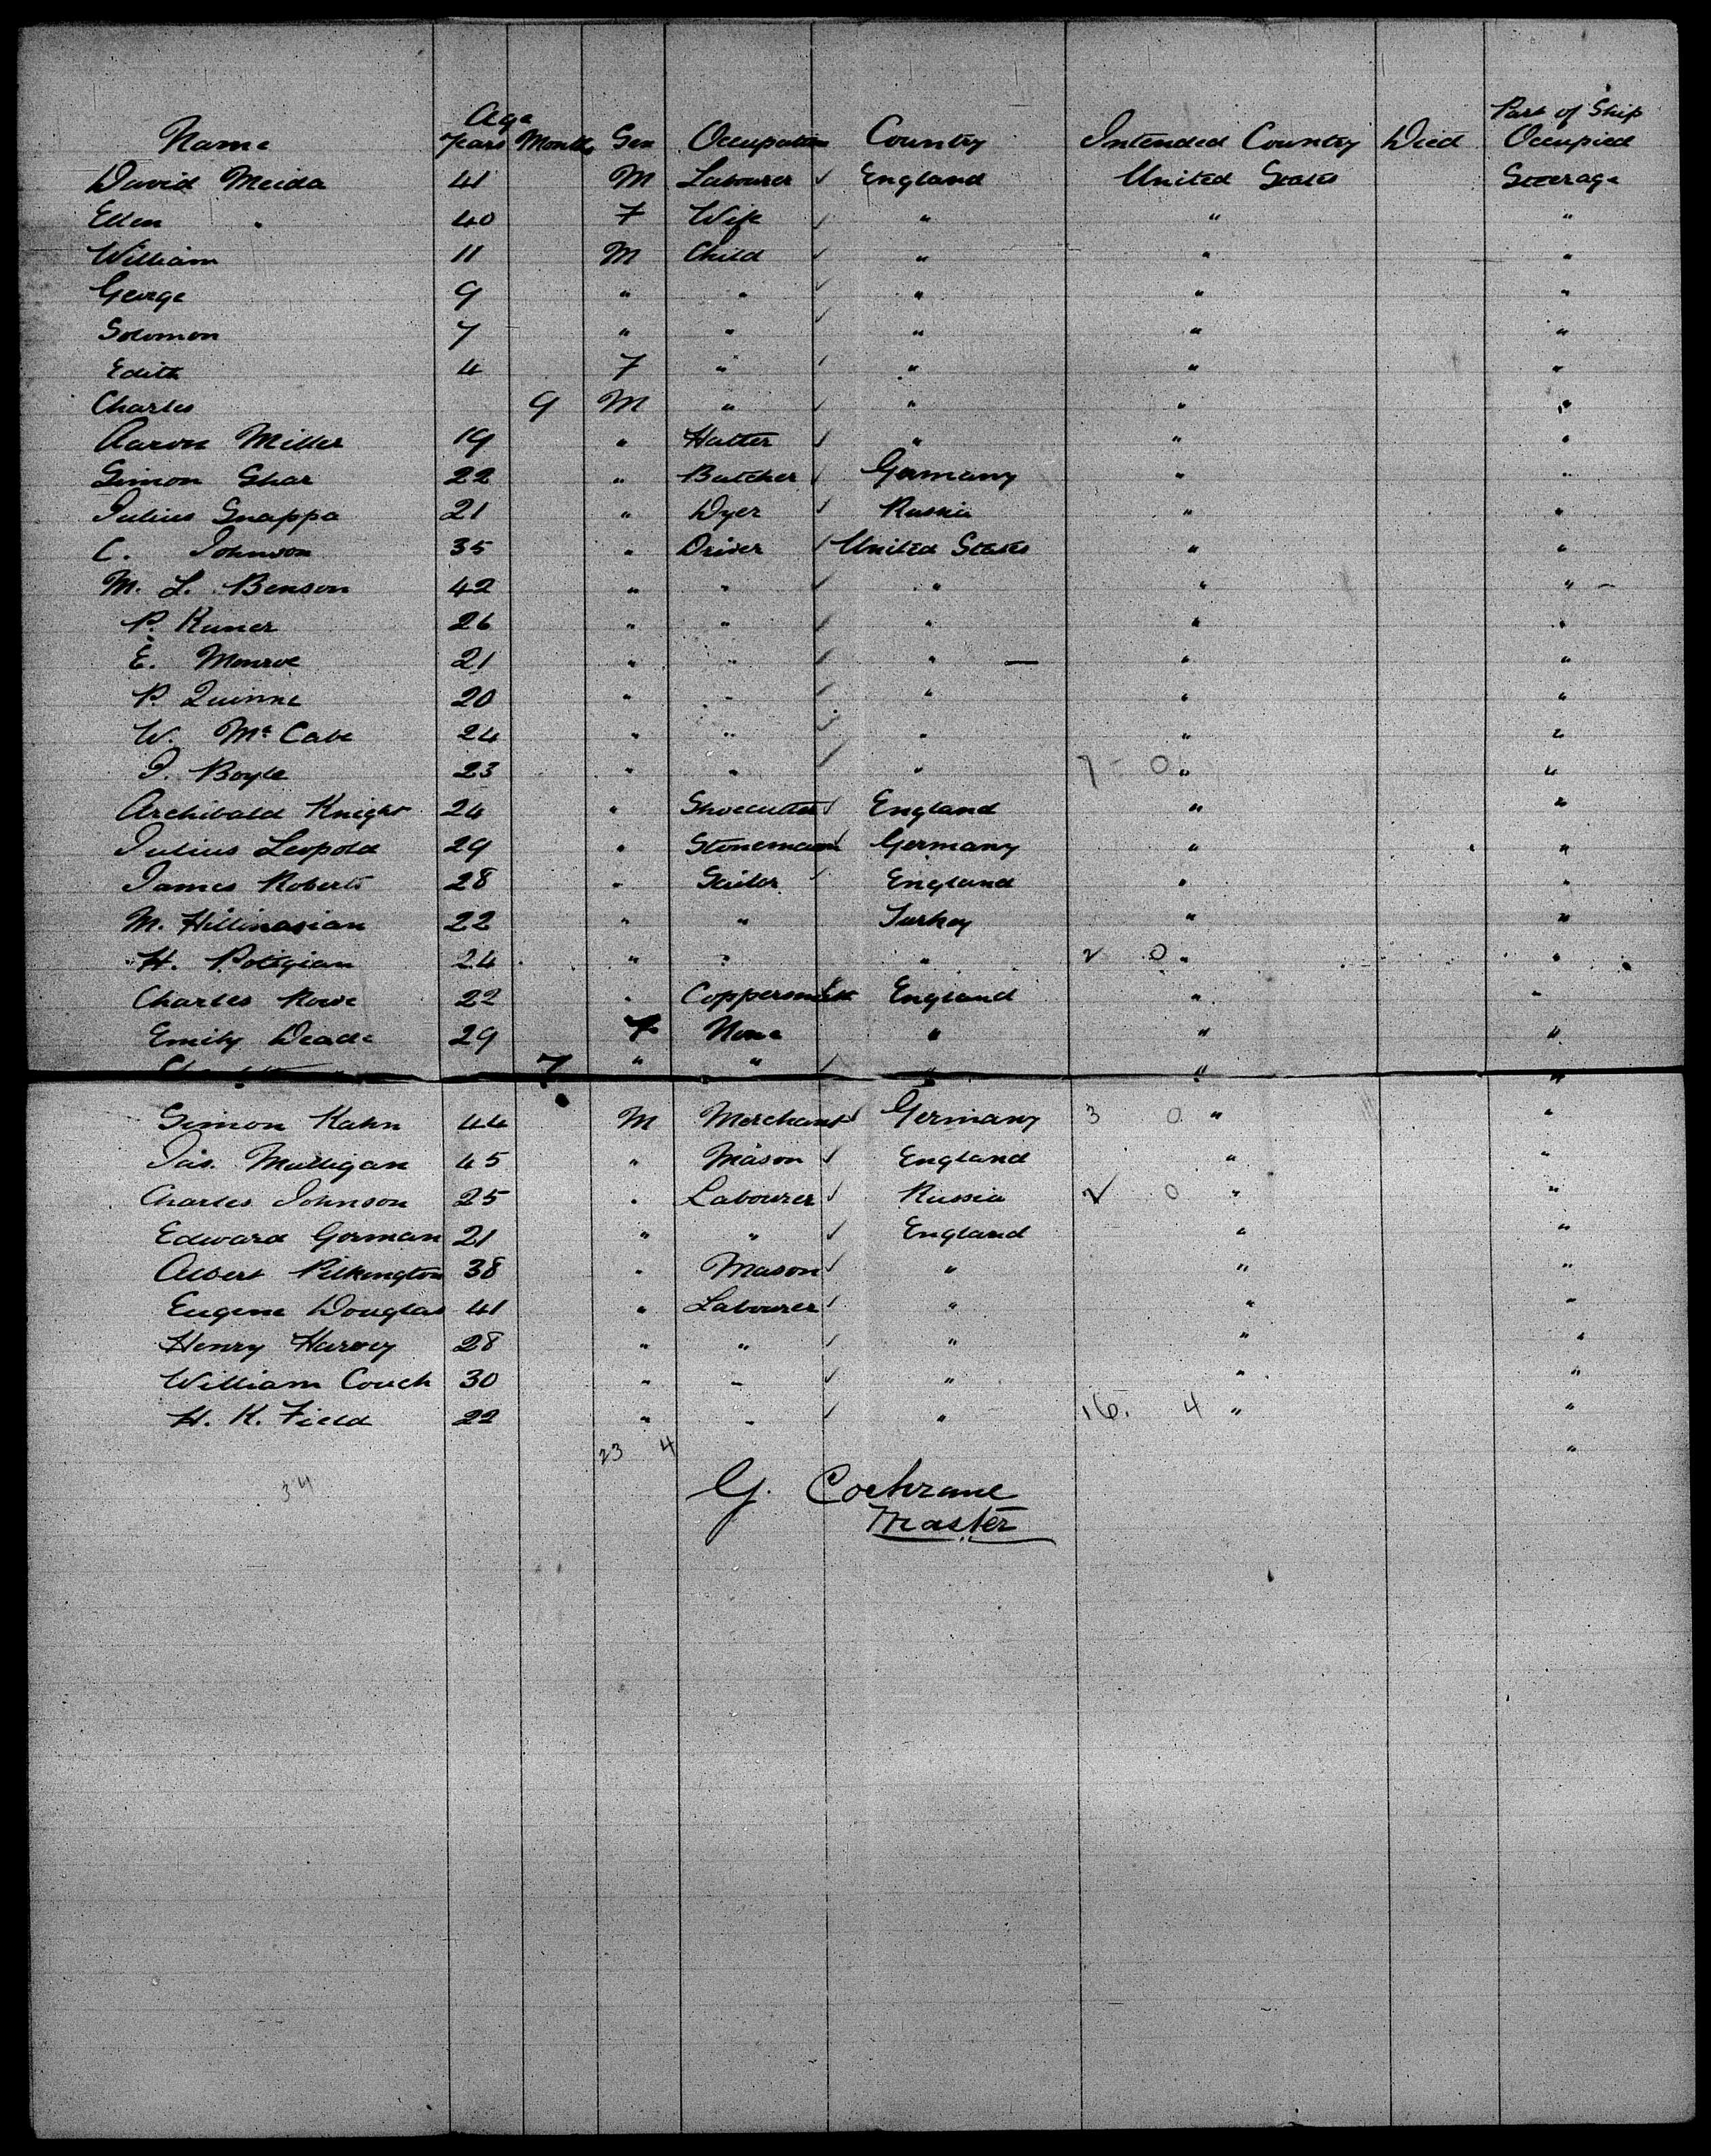 Age Part of Ship
Name Years Months Sex Occupation Country Intended Country Died Occupied
David Meida 41 M Labourer ✓ England United States Steerage
Ellen " 40 F Wife ✓ " " "
William 11 M Child ✓ " " "
George 9 " " ✓ " " "
Solomon 7 " " ✓ " " "
Edith 4 F " ✓ " " "
Charles 9 M " ✓ " " "
Aaron Miller 19 " Hatter ✓ " " "
Simon Shar 22 " Butcher ✓ Germany " "
Julius Snappa 21 " Dyer ✓ Russia " "
C. Johnson 35 " Driver ✓ United States " "
M. L. Benson 42 " " ✓ " " "
P. Kuner 26 " " ✓ " " "
E. Monroe 21 " " ✓ " " "
P. Quinne 20 " " ✓ " " "
W. McCabe 24 " " ✓ " " "
J. Boyle 23 " " ✓ " 7 - 0 " "
Archibald Knight 24 " Shoecutter ✓ England " "
Julius Leopold 29 " Stonemason ✓ Germany " "
James Roberts 28 " Sailor ✓ England " "
M. Hillinasian 22 " " Turkey " "
H. Potigian 24 " " " 2 0 " "
Charles Rowe 22 " Coppersmith England " "
Emily Deade 29 F None " " "
7 " " ✓ " " "
Simon Kahn 44 M Merchant ✓ Germany 3 0 " "
Jas. Mulligan 45 " Mason ✓ England " "
Charles Johnson 25 " Labourer ✓ Russia 2 0 " "
Edward Gorman 21 " " ✓ England " "
Albert Pilkington 38 " Mason ✓ " " "
Eugene Douglas 41 " Labourer ✓ " " "
Henry Harvey 28 " " ✓ " " "
William Couch 30 " " ✓ " " "
H. K. Field 22 " " ✓ " 16. 4 " "
23 4 "
34
G. Cochrane
Master